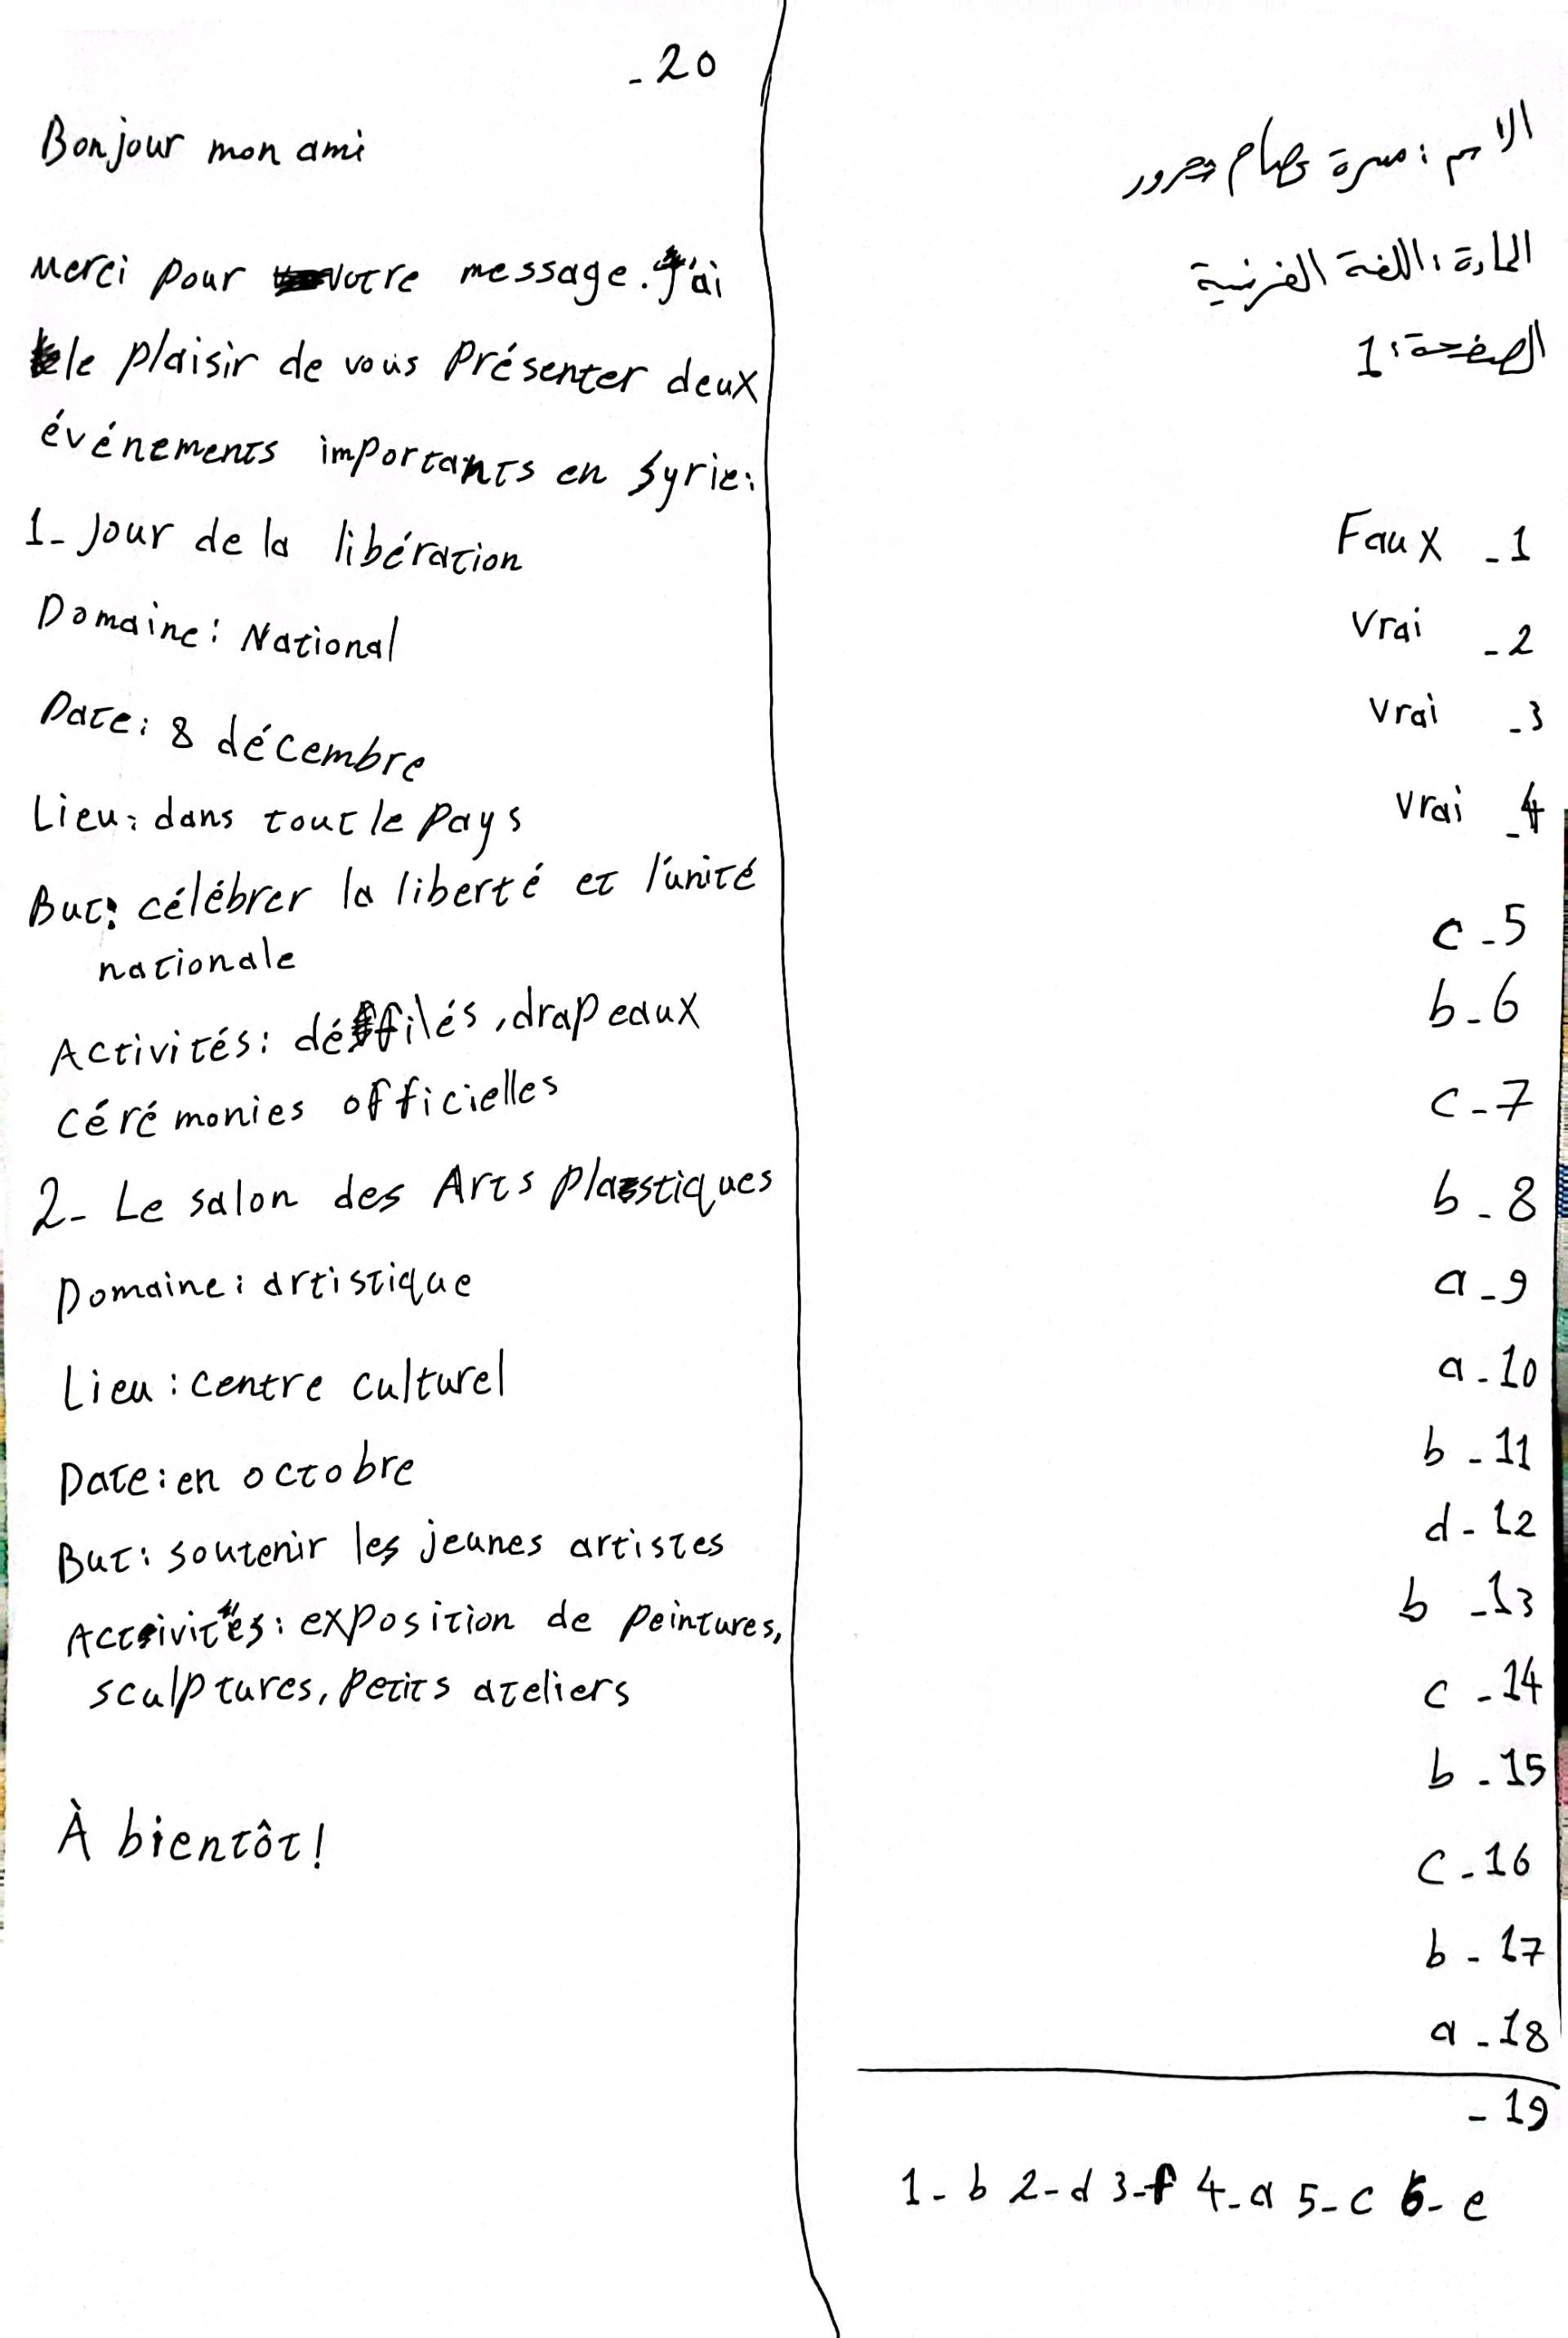 الاسم: مسرة عصام حرور
المادة: اللغة الفرنسية
الصفحة: 1
Faux _ 1
Vrai _ 2
Vrai _ 3
Vrai _ 4
c _ 5
b _ 6
c _ 7
b _ 8
a _ 9
a _ 10
b _ 11
d _ 12
b _ 13
c _ 14
b _ 15
c _ 16
b _ 17
a _ 18
_ 19
1_ b 2_ d 3_f 4_a 5_ c 6_ e
_ 20
Bonjour mon ami
Merci pour votre message. J'ai
le plaisir de vous Présenter deux
événements importants en Syrie:
1_ Jour de la libération
Domaine: National
Date: 8 décembre
Lieu: dans tout le pays
But: célébrer la liberté et l'unité
nationale
Activités: défilés, drapeaux
cérémonies officielles
2_ Le salon des Arts plastiques
Domaine: artistique
Lieu: centre culturel
Date: en octobre
But: soutenir les jeunes artistes
Activités: exposition de peintures,
sculptures, petits ateliers
À bientôt!